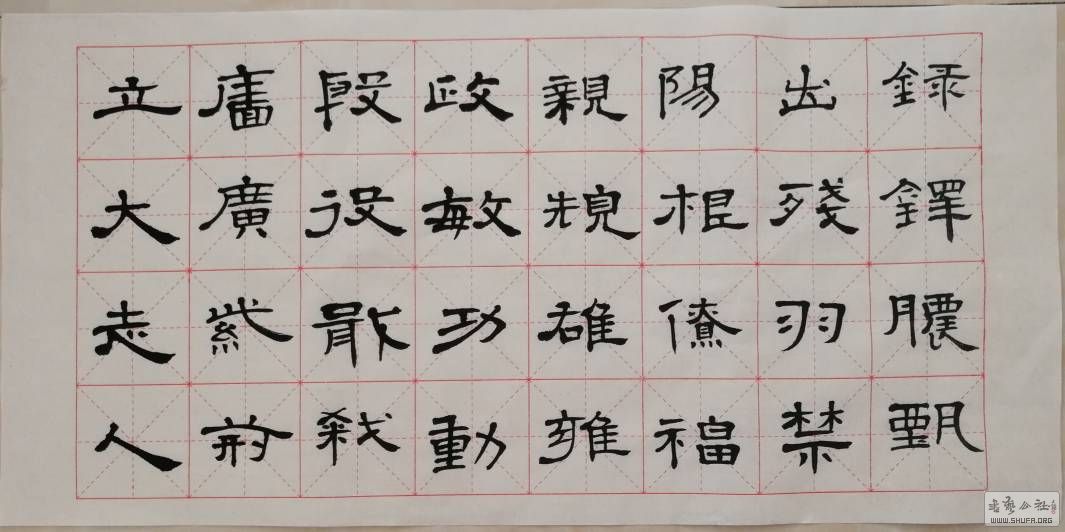 錄鐸甄
出殘羽禁
陽根僚福
親規雄雍
政敏功動
段役散殺
廣紫前
立大走人
書藝公社
WWW.SHUFA.ORG